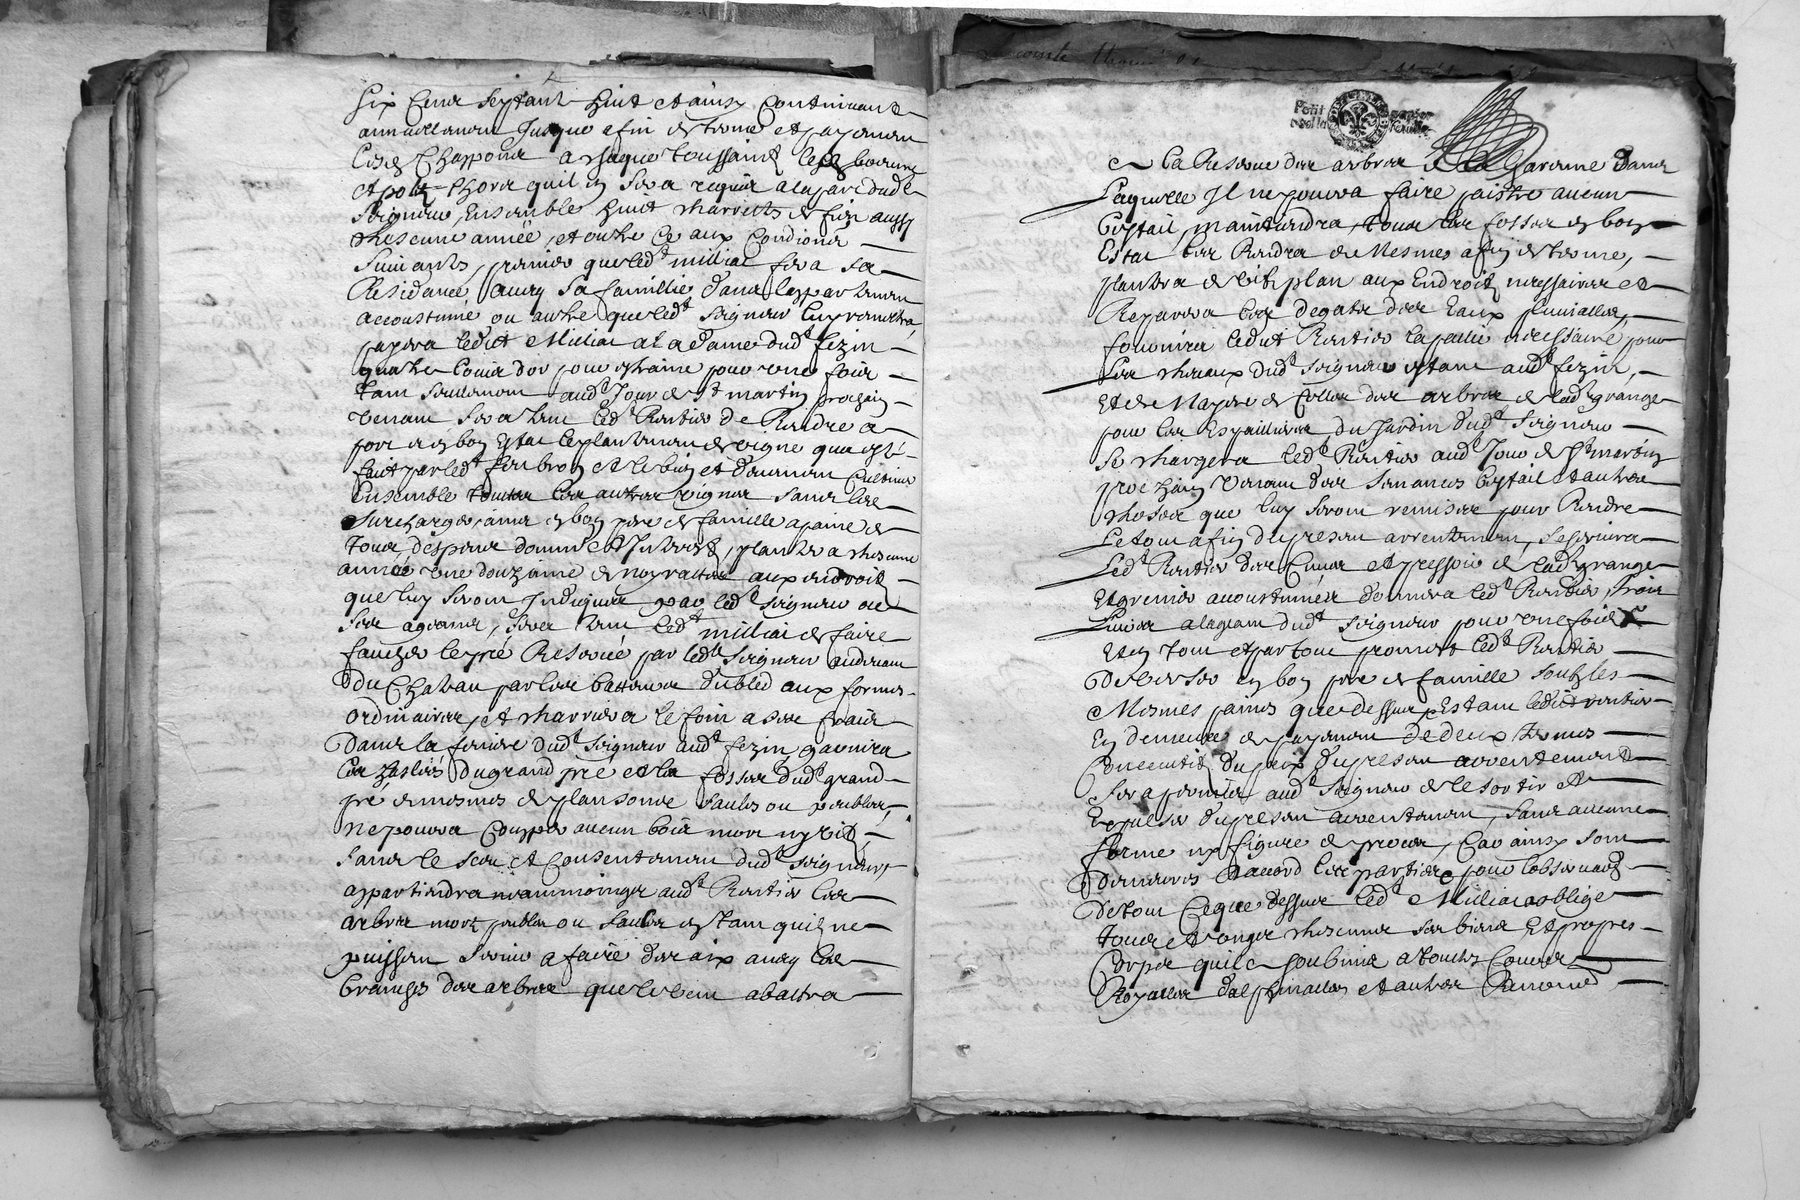 six cens septante huit et ainsy continuant
annuellement jusque a fin de terme et payement
lesd chappons a chaque toussaint lesd beurre
seigneur, Ensemble huit charretés de fien aussy
chescune année, et outre ce aux condiõns
suivants, premier que led.t milliat fera sa
Residance avecq sa famillie dans lappartement
accoustumé ou autre que led.t seigneur luy remettra,
payera ledict Milliat a la dame dud.t fezin
quatre Louis d'or pour estraine pour une fois
tant seulement aud.t Jour de s.t martin prochain
venant sera tenu led.t Rentier de Rendre a
fort et en bon Estat le plantement de vigne qua esté
fait par led.t et le bien et deument cultiver
Ensemble toutes les autres vignes sans les
surcharger ains en bon pere de famille a paine de
tous despens dommaiges Interests, plantera chescune
année une douzaine de noyrattes aux endroits
que luy seront Indiqués par led.t seigneur ou
ses agents, sera tenu led.t milliat de faire
faucher le pré Reservé par led.t seigneur audevant
Du Chateau par les batteurs du bled aux formes
ordinaires, et charriera le foin a ses frais
Dans la feniere dud.t seigneur aud.t fezin garnira
les du grand pré et les fossés dud.t grand
pré de mesmes de plansons saules ou peubles,
ne pouvra coupper aucun bois mort ny vif,
sans le sceu et consentement dud.t seigneur
appartiendra neammoingts aud.t Rentier les
arbres morts peubles ou saules estant quils ne
puissent servir a faire des aix avecq les
branches des arbres que le vent abattra
Petit papier
feuille
La Reserve des arbres de la Garenne dans
Laquelle Il ne pouvra faire paistre aucun
bestail, maintiendra tous les fossés en bon
Estat les Rendra de Mesmes a fin de terme,
plantra de vif plan aux Endroits necessaires et
Reparera les degats des Eaux pluvialles,
fournira ledict Rentier la paille necessaire pour
Les chevaux dud.t seigneur estant aud.t fezin,
pour les Espailliers du Jardin dud.t seigneur
se chargera led.t Rentier aud.t Jour de s.t martin
prochain venant des semances bestail et autres
choses que luy seront remises pour Rendre
Le tout a fin du presant arrentement, se servira
Led.t Rentier des Cuves et pressoir de lad.te grange
Et greniers accoustumés donnera led.t Rentier, trois
Livres a lagent dud.t seigneur pour une fois
Et en tout et par tout promet led.t Rentier
De verser en bon pere de famille soubz les
Mesmes paines que dessus, Estant ledict rentier
En demeure de payement de deux termes
Consecutifs du prix du presant arrentement
sera permis aud.t seigneur de le sortir et
Expulser du presant arrentement, sans aucune
forme ny figure de proces, Car ainsy sont
Demeurés d'accord les parties, pour lobservation
De tout ce que dessus led.t Milliat oblige
tous et ungts chescungs ses biens Et propres
Corps quil a soubmis a toutes Cours
Royalles dalphinalles et autres